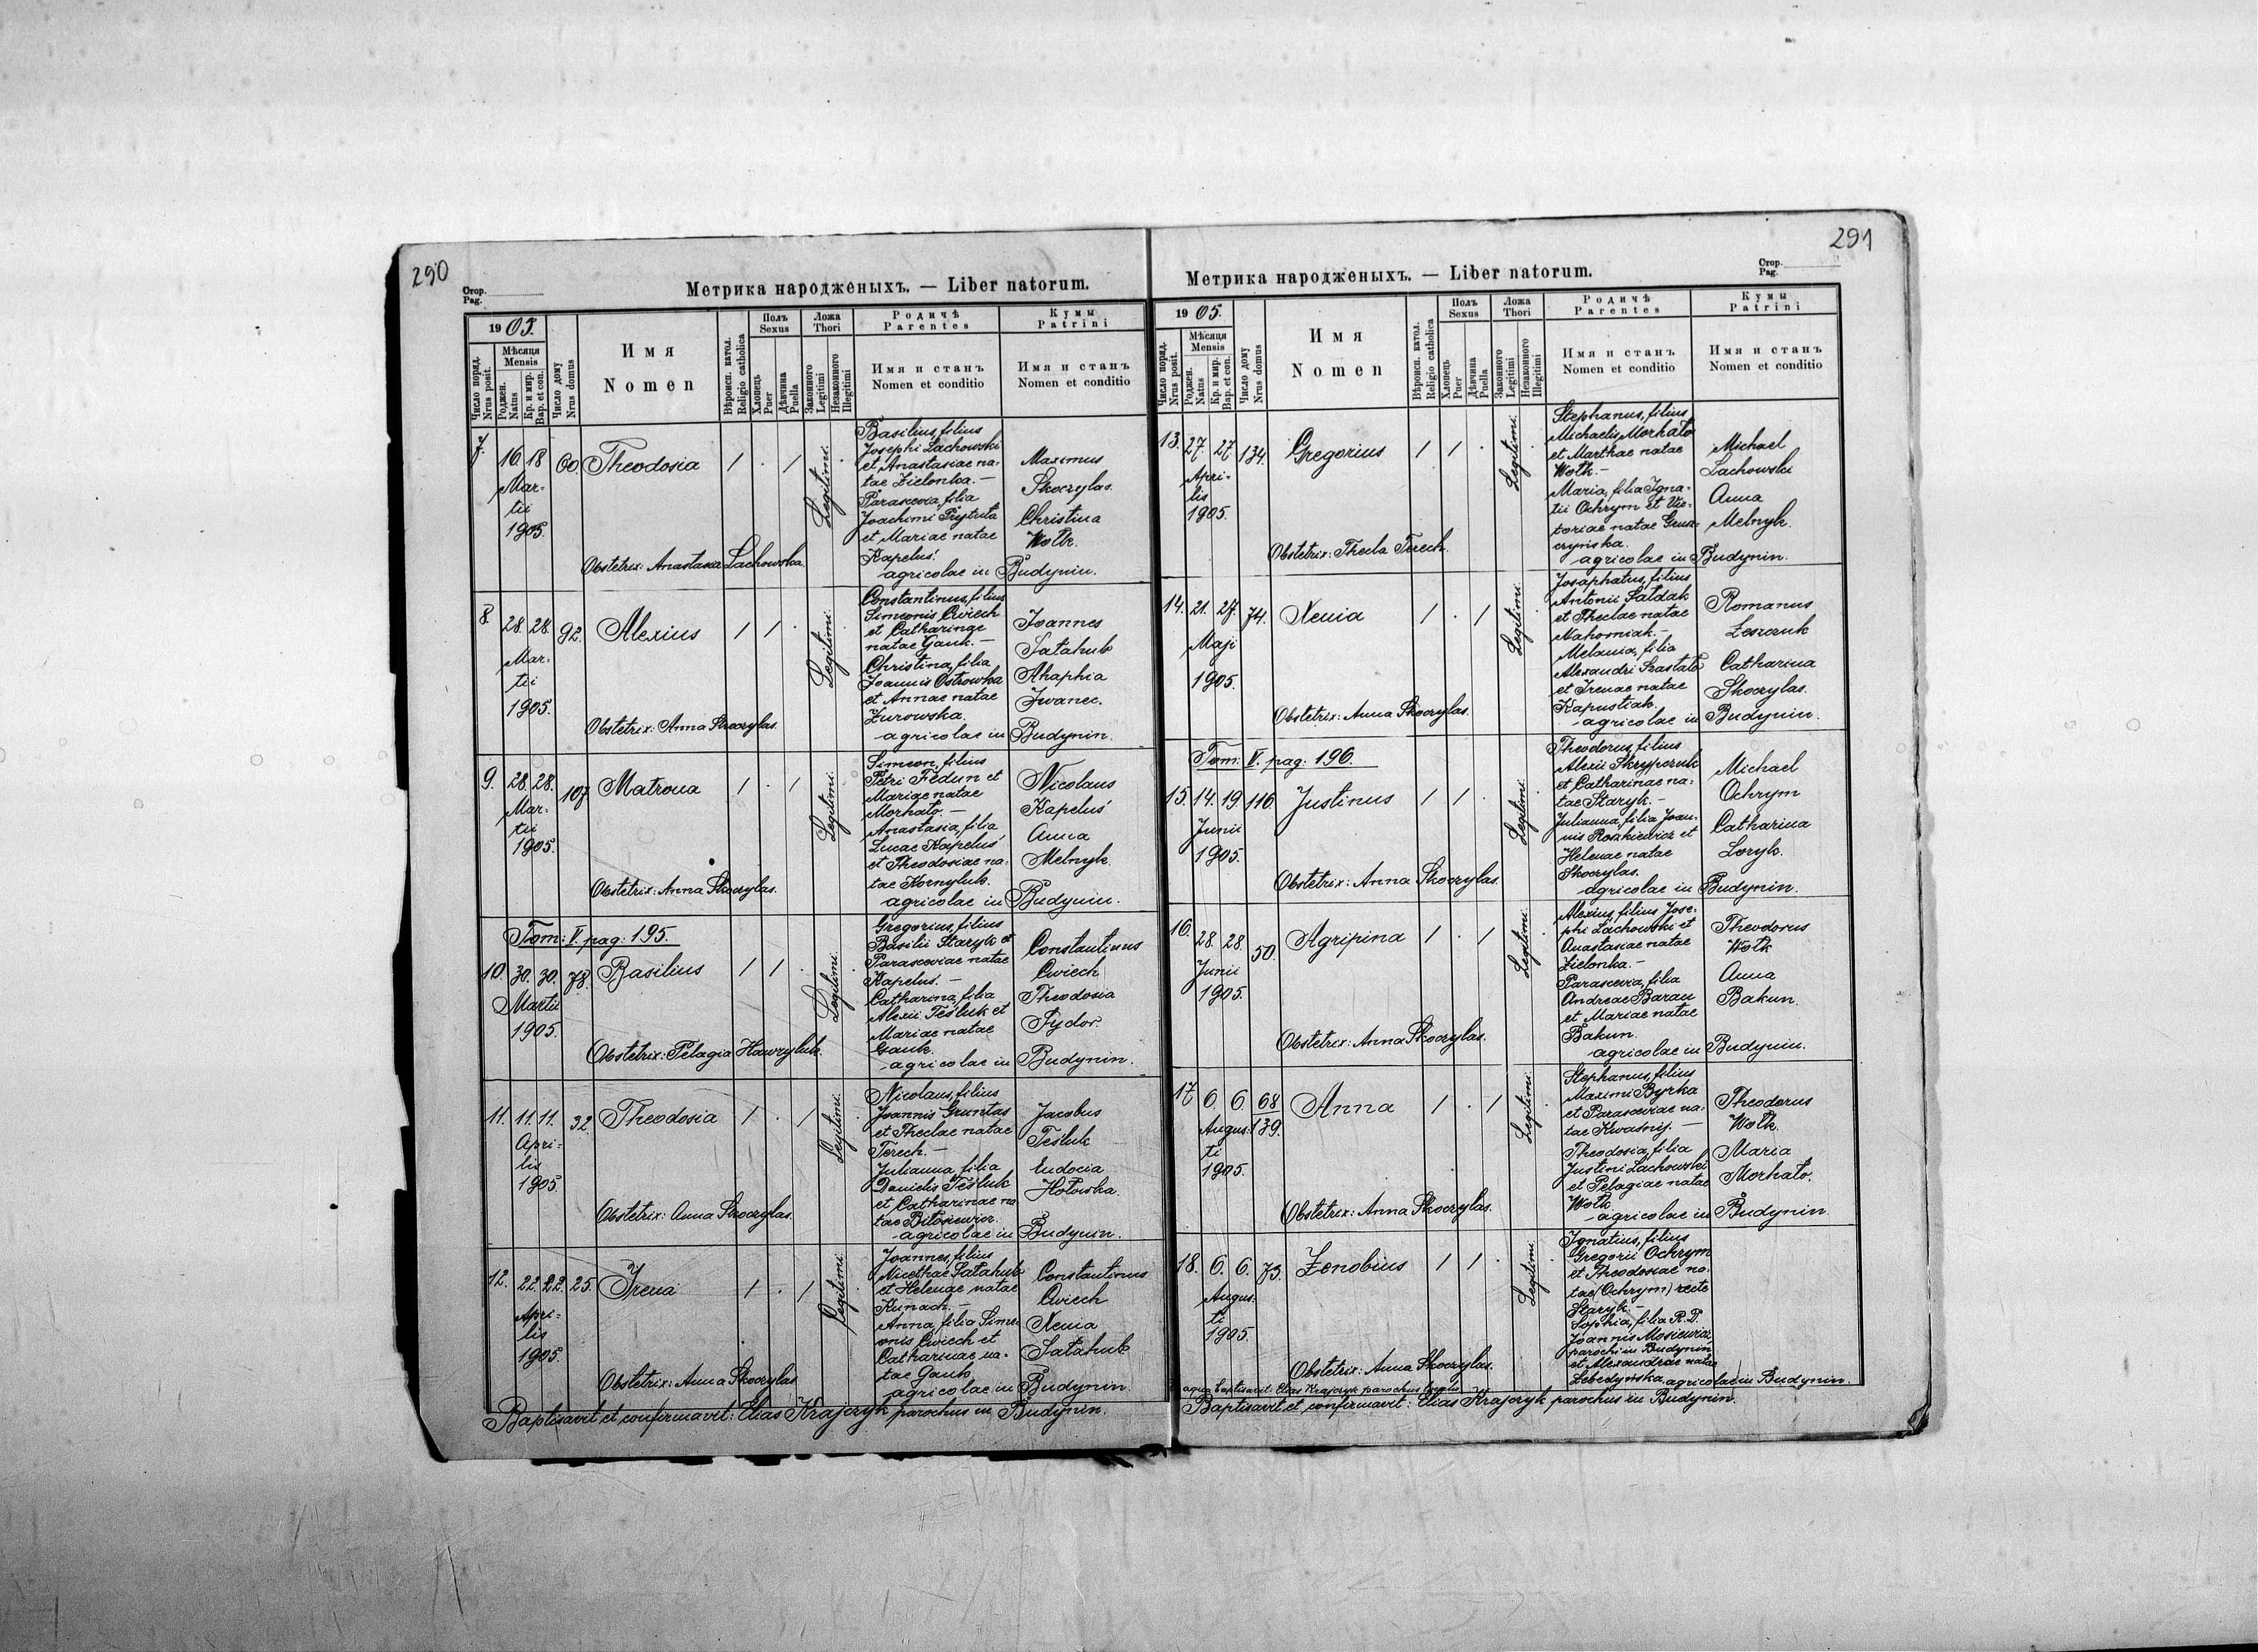 290
Стор.
Pag.
Метрика народженыхъ. — Liber natorum.
1905.
Число поряд.
Nrus posit.
Мѣсяця
Mensis
Роджен.
Natus
Кр. и мир.
Bap. et con.
Число дому
Nrus domus
Имя
Nomen
Вѣроисп. катол.
Religio catholica
Полъ
Sexus
Хлопець
Puer
Дѣвчина
Puella
Ложа
Thori
Законного
Legitimi
Незаконного
Illegitimi
Родичѣ
Parentes
Имя и станъ
Nomen et conditio
Кумы
Patrini
Имя и станъ
Nomen et conditio
7. 16. 18 60. Theodosia / . / Legitimi.
Martii
1905.
Basilius, filius
Josephi Lachowski
et Anastasiae na-
tae Zielonka. —
Parascevia, filia
Joachimi Prytuła
et Mariae natae
Kapeluś.
agricolae in Budynin.
Maximus
Skoczylas.
Christina
Wołk.
Obstetrix: Anastasia Lachowska.
8. 28. 28. 92. Alexius / / . Legitimi.
Mar-
tii
1905.
Constantinus, filius
Simeonis Cwiech
et Catharinae
natae Gauk. —
Christina, filia
Joannis Ostrowka
et Annae natae
Żurowska.
agricolae in Budynin.
Joannes
Sałahub
Ahaphia
Iwanec.
Obstetrix: Anna Skoczylas.
9. 28. 28. 107 Matrona / . / Legitimi.
Mar-
tii
1905.
Simeon, filius
Petri Fedun et
Mariae natae
Morhało. —
Anastasia, filia
Lucae Kapeluś
et Theodosiae na-
tae Kornyluk.
agricolae in Budynin.
Nicolaus
Kapeluś
Anna
Melnyk.
Obstetrix: Anna Skoczylas.
Tom: V. pag: 195.
10. 30. 30. 78. Basilius / / . Legitimi.
Martii
1905.
Gregorius, filius
Basilii Staryk et
Parasceviae natae
Kapeluś. —
Catharina, filia
Alexii Tesluk et
Mariae natae
Gauk.
agricolae in Budynin.
Constantinus
Cwiech
Theodosia
Fydor.
Obstetrix: Pelagia Hawryluk.
11. 11. 11. 32. Theodosia / . / Legitimi.
Apri-
lis
1905.
Nicolaus, filius
Joannis Gruntas
et Theclae natae
Terech. —
Julianna, filia
Danielis Tesluk
et Catharinae na-
tae Biłosiewicz.
agricolae in Budynin.
Jacobus
Tesluk
Eudocia
Hołowka.
Obstetrix: Anna Skoczylas.
12. 22. 22. 25. Irena / . / Legitimi.
Apri-
lis
1905.
Joannes, filius
Nicethae Sałahub
et Helenae natae
Kunach. —
Anna, filia Sime-
onis Cwiech et
Catharinae na-
tae Gauk
agricolae in Budynin
Constantinus
Cwiech
Xenia
Sałahub
Obstetrix: Anna Skoczylas
Baptisavit et confirmavit: Elias Krajczyk parochus in Budynin.
291
Стор.
Pag.
Метрика народженыхъ. — Liber natorum.
1905.
Число поряд.
Nrus posit.
Мѣсяця
Mensis
Роджен.
Natus
Кр. и мир.
Bap. et con.
Число дому
Nrus domus
Имя
Nomen
Вѣроисп. катол.
Religio catholica
Полъ
Sexus
Хлопець
Puer
Дѣвчина
Puella
Ложа
Thori
Законного
Legitimi
Незаконного
Illegitimi
Родичѣ
Parentes
Имя и станъ
Nomen et conditio
Кумы
Patrini
Имя и станъ
Nomen et conditio
13. 27. 27 134. Gregorius / / . Legitimi.
Apri-
lis
1905.
Stephanus, filius
Michaelis Morhało
et Marthae natae
Wołk. —
Maria, filia Igna-
tii Ochrym et Vic-
toriae natae Grusz-
czyńska.
agricolae in Budynin.
Michael
Lachowski
Anna
Melnyk.
Obstetrix: Thecla Terech.
14. 21. 27. 74. Xenia / . / Legitimi.
Maji
1905.
Josaphatus, filius
Antonii Sałdak
et Theclae natae
Nahorniak. —
Melania, filia
Alexandri Szastało
et Irenae natae
Kapustiak.
agricolae in Budynin.
Romanus
Leszczuk
Catharina
Skoczylas.
Obstetrix: Anna Skoczylas.
Tom: V. pag: 196.
15. 14. 19. 116. Justinus / / . Legitimi.
Junii
1905.
Theodorus, filius
Alexii Skrypczuk
et Catharinae na-
tae Staryk. —
Julianna, filia Joan-
nis Roszkiewicz et
Helenae natae
Skoczylas.
agricolae in Budynin.
Michael
Ochrym
Catharina
Loryk.
Obstetrix: Anna Skoczylas.
16. 28. 28. 50. Agripina / . / Legitimi.
Junii
1905.
Alexius, filius Jose-
phi Lachowski et
Anastasiae natae
Zielonka. —
Parascevia, filia
Andreae Baran
et Mariae natae
Bakun.
agricolae in Budynin.
Theodorus
Wołk
Anna
Bakun.
Obstetrix: Anna Skoczylas.
17 6. 6. 68/139. Anna / . / Legitimi.
Augus-
ti
1905.
Stephanus, filius
Maximi Byrka
et Parasceviae na-
tae Kwasnij. —
Theodosia, filia
Justini Lachowski
et Pelagiae natae
Wołk
agricolae in Budynin.
Theodorus
Wołk.
Maria
Morhało.
Obstetrix: Anna Skoczylas.
18. 6. 6. 73. Zenobius / / . Legitimi.
Augus-
ti
1905.
Ignatius, filius
Gregorii Ochrym
et Theodosiae na-
tae (Ochrym) recte
Staryk. —
Sophia, filia R. D.
Joannis Mosiewicz,
parochi in Budynin
et Alexandrae natae
Lebedyńska, agricolae in Budynin.
Obstetrix: Anna Skoczylas.
aqua baptisavit: Elias Krajczyk parochus
Baptisavit et confirmavit: Elias Krajczyk parochus in Budynin.